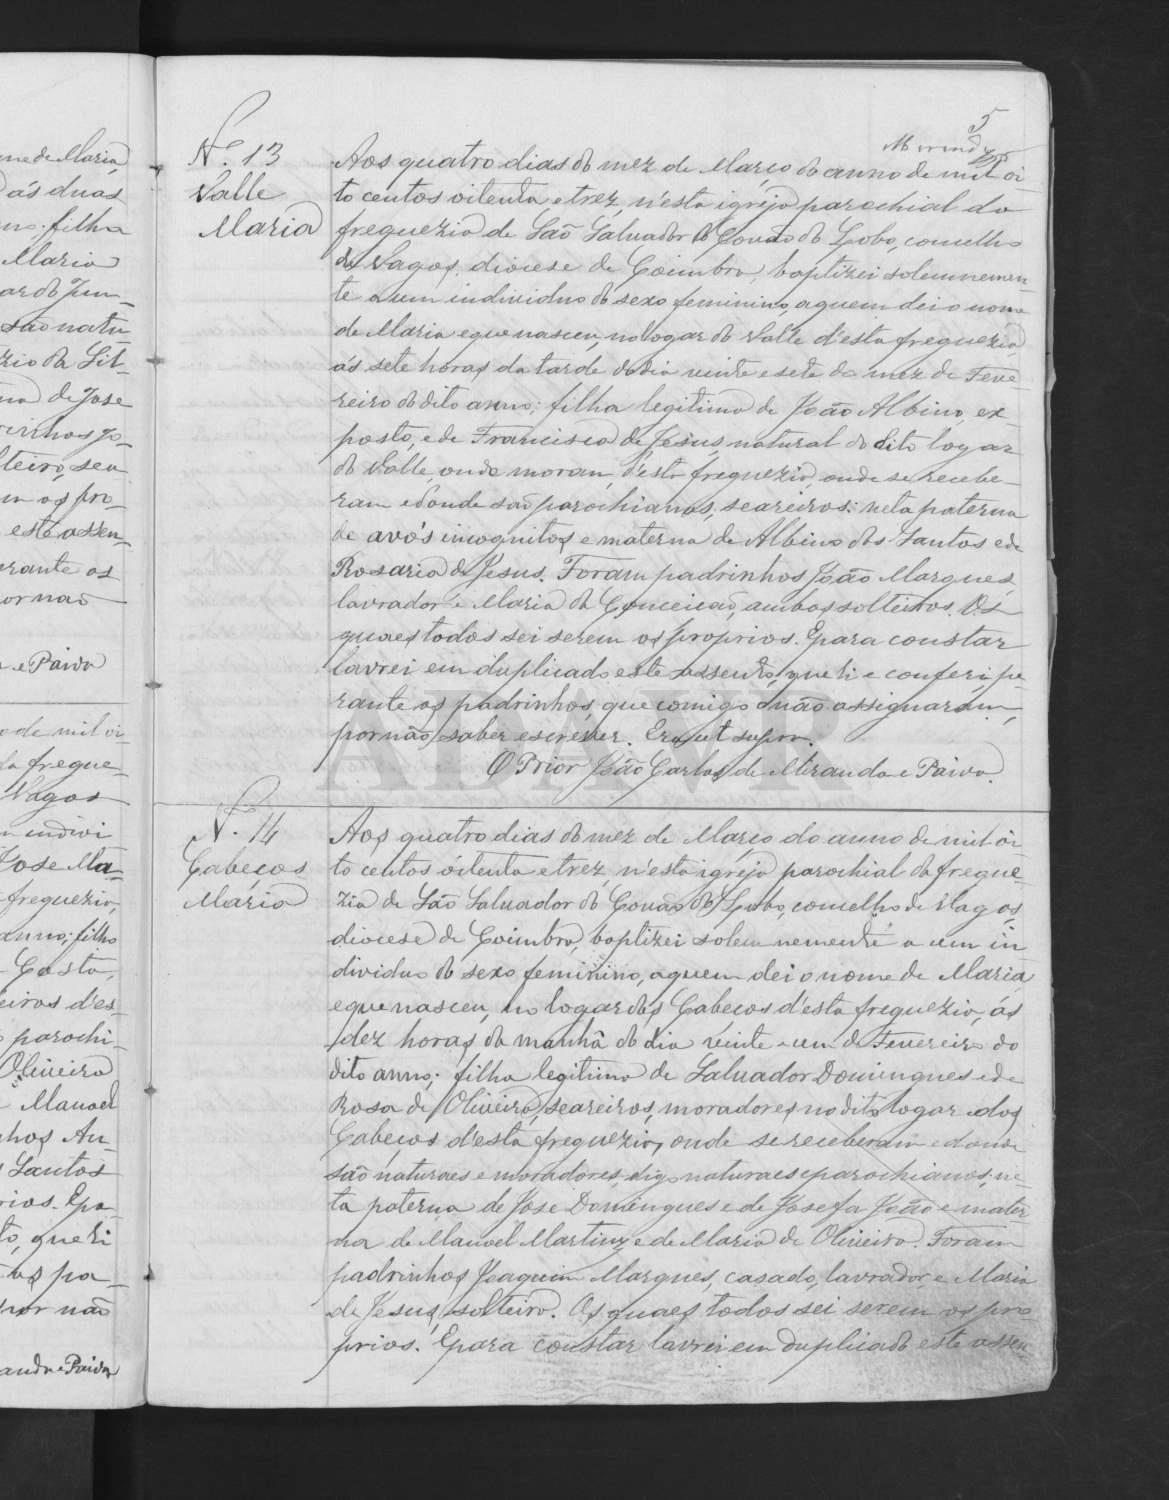 5
Nº. 13
Valle
Maria
Aos quatro dias do mez de Março do anno de mil oi-
to centos oitenta e trez, n'esta igreja parochial da
freguezia de São Salvador do Covão do Lobo, concelho
de Vagos, diocese de Coimbra, baptizei solemnemen-
te a um individuo do sexo feminino, a quem dei o nome
de Maria e que nasceu, no logar do Valle d'esta freguezia,
ás sete horas da tarde do dia vinte e sete do mez de Feve-
reiro do dito anno; filha legitima de João Albino, ex-
posto, e de Francisca de Jesus, natural do dito logar
do Valle, onde moram, d'esta freguezia, onde se recebe-
ram e d'onde são parochianos, seareiros; neta paterna
de avós incognitos e materna de Albino dos Santos e de
Rosaria de Jesus. Foram padrinhos João Marques,
lavrador e Maria da Conceição, ambos solteiros. Os
quaes todos sei serem os proprios. E para constar
lavrei em duplicado este assento, que li e conferi pe-
rante os padrinhos, que comigo não assignaram,
por não saber escrever. Era ut supra.
O Prior João Carlos de Miranda e Paiva.
Nº. 14
Cabeços
Maria
Aos quatro dias do mez de Março do anno de mil oi-
to centos oitenta e trez, n'esta igreja parochial da fregue-
zia de São Salvador do Covão do Lobo, concelho de Vagos,
diocese de Coimbra, baptizei solemnemente a um in
dividuo do sexo feminino, a quem dei o nome de Maria
e que nasceu, no logar dos Cabeços d'esta freguezia, ás
dez horas da manhã do dia vinte e um de Fevereiro do
dito anno; filha legitima de Salvador Domingues e de
Rosa de Oliveira, seareiros, moradores no dito logar dos
Cabeços d'esta freguezia, onde se receberam e d'onde
são naturaes e moradores, digo naturaes e parochianos; ne-
ta paterna de José Domingues e de Josefa João e mater-
na de Manoel Martins e de Maria de Oliveira. Foram
padrinhos Joaquim Marques, casado, lavrador, e Maria
de Jesus, solteira. Os quaes todos sei serem os pro
prios. E para constar lavrei em duplicado este assen-
ADAVR